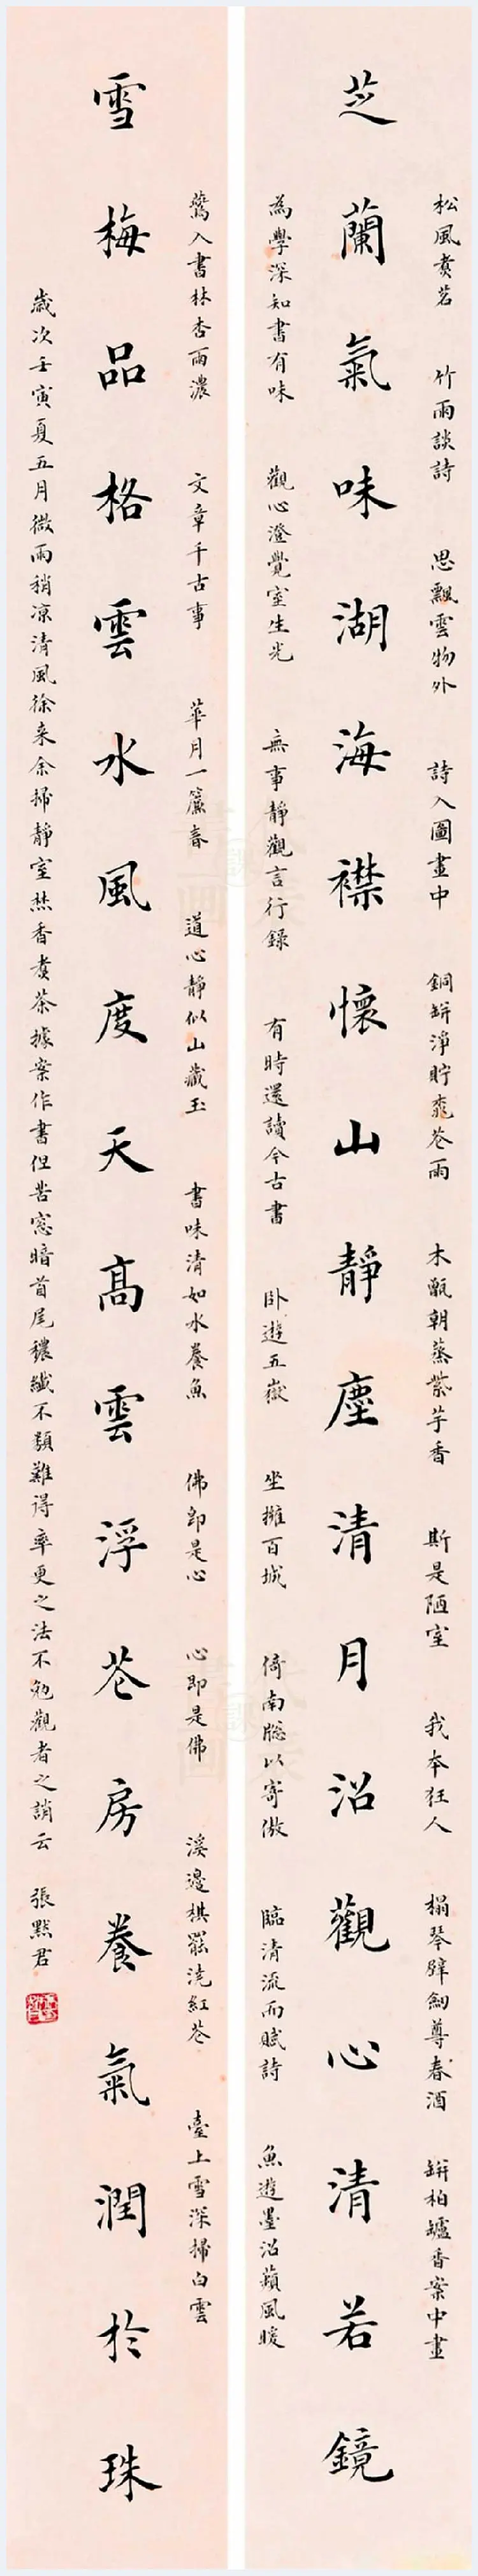 松風煮茗 竹雨談詩 思飄雲物外 詩入圖畫中 銅缾淨貯 苍雨 木甑朝蒸紫芋香 斯是陋室 我本狂人 榻琴壁劍尊春酒 缾柏罏香案中畫
芝蘭氣味湖海襟懷山靜塵清月沼觀心清若鏡
為學深知書有味 觀心澄覺室生光 無事靜觀言行錄 有時還讀今古書 卧遊五嶽 坐擁百城 倚南牎以寄傲 臨清流而賦詩 魚遊墨沼蘋風暖
鶯入書林杏雨濃 文章千古事 華月一簾春 道心靜似山藏玉 書味清如水養魚 佛即是心 心即是佛 溪邊棋罷浇紅苍 臺上雪深掃白雲
雪梅品格雲水風度天高雲浮苍房養氣潤於珠
歲次壬寅夏五月微雨稍凉清風徐来余掃靜室焚香煮茶據案作書但苦窓暗首尾穠纖不類難得率更之法不勉觀者之誚云 張默君